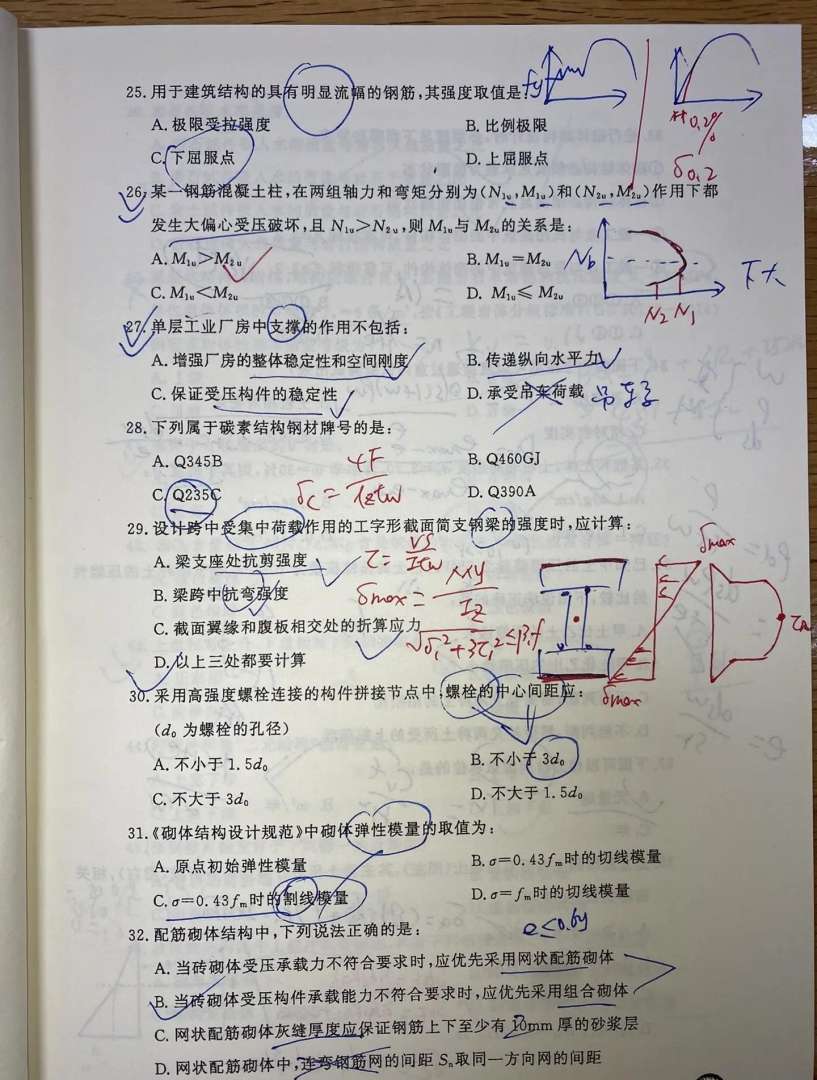 25. 用于建筑结构的具有明显流幅的钢筋,其强度取值是:
fy
A. 极限受拉强度 B. 比例极限
0.2%
C. 下屈服点 D. 上屈服点
δ0.2
26. 某一钢筋混凝土柱,在两组轴力和弯矩分别为(N1u,M1u)和(N2u,M2u)作用下都
发生大偏心受压破坏,且 N1u>N2u,则 M1u与 M2u的关系是:
A. M1u>M2u B. M1u=M2u
Nb 下大
C. M1u<M2u D. M1u≤M2u
N2 N1
27. 单层工业厂房中支撑的作用不包括:
A. 增强厂房的整体稳定性和空间刚度 B. 传递纵向水平力
C. 保证受压构件的稳定性 D. 承受吊车荷载 吊车
28. 下列属于碳素结构钢材牌号的是:
A. Q345B B. Q460GJ
C. Q235C D. Q390A
δc=4F/lztw
29. 设计跨中受集中荷载作用的工字形截面简支钢梁的强度时,应计算:
A. 梁支座处抗剪强度 τ=VS/Itw
δmax
B. 梁跨中抗弯强度 δmax=My/Iz
C. 截面翼缘和腹板相交处的折算应力 √δ1²+3τ1²≤β1f
D. 以上三处都要计算
δmax
30. 采用高强度螺栓连接的构件拼接节点中,螺栓的中心间距应:
(d0 为螺栓的孔径)
A. 不小于 1.5d0 B. 不小于 3d0
C. 不大于 3d0 D. 不大于 1.5d0
31.《砌体结构设计规范》中砌体弹性模量的取值为:
A. 原点初始弹性模量 B. σ=0.43fm时的切线模量
C. σ=0.43fm时的割线模量 D. σ=fm时的切线模量
32. 配筋砌体结构中,下列说法正确的是: e≤0.6y
A. 当砖砌体受压承载力不符合要求时,应优先采用网状配筋砌体
B. 当砖砌体受压构件承载能力不符合要求时,应优先采用组合砌体
C. 网状配筋砌体灰缝厚度应保证钢筋上下至少有 10mm 厚的砂浆层
D. 网状配筋砌体中,连弯钢筋网的间距 Sn取同一方向网的间距